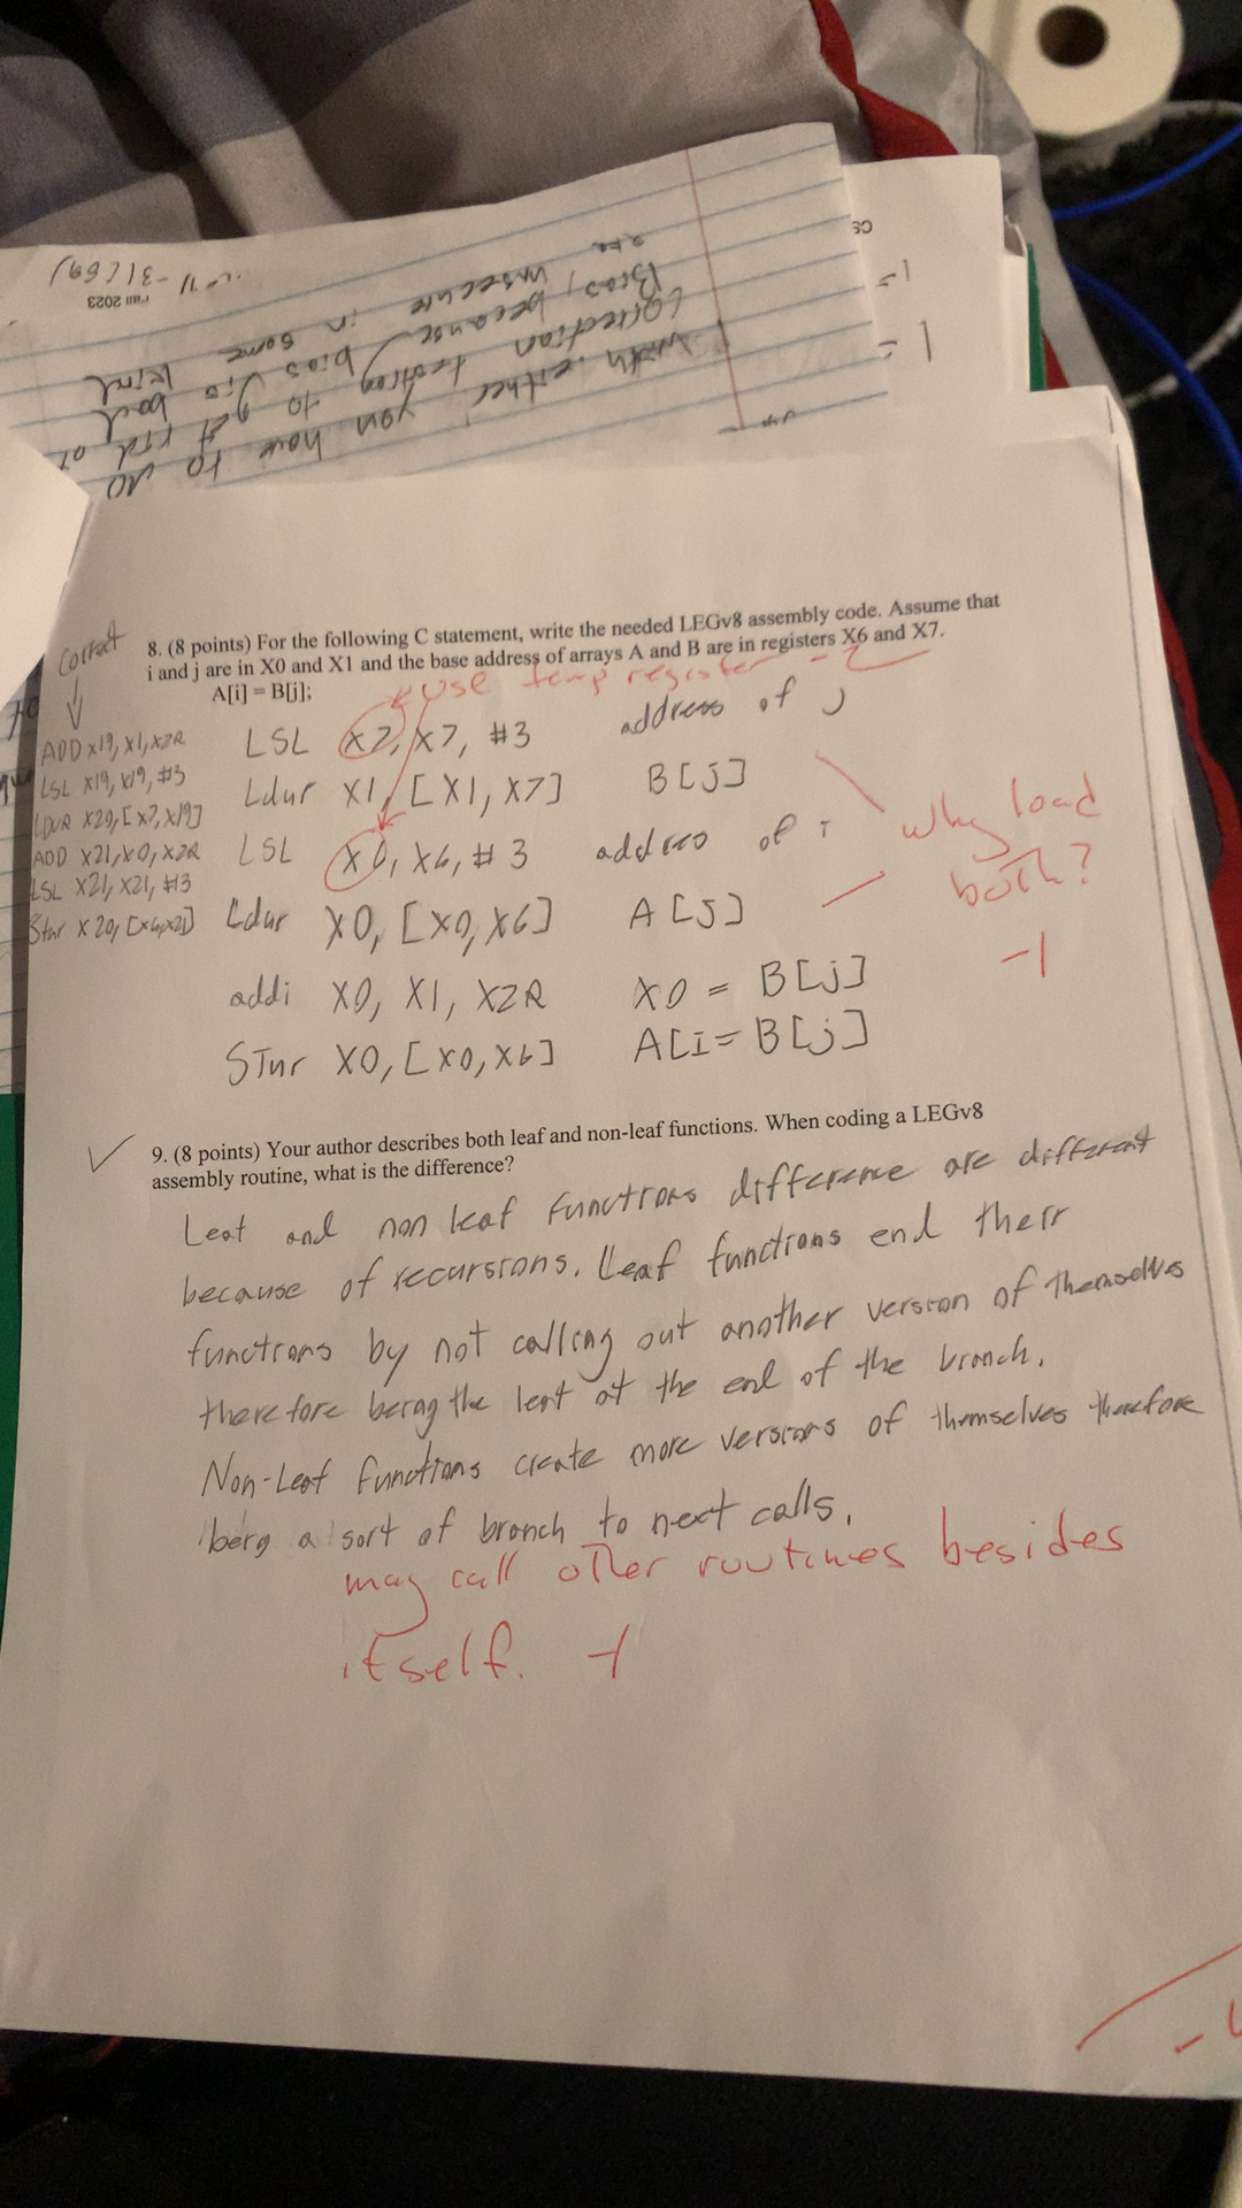 CS
-31(69)
Fall 2023
1 -
1 -
do to have you either with
of rid get to testing correction
kind bad bias because Bias,
some in insecure
correct
8. (8 points) For the following C statement, write the needed LEGv8 assembly code. Assume that
i and j are in X0 and X1 and the base address of arrays A and B are in registers X6 and X7.
A[i] = B[j];
use temp register -2
ADD X19, X1, XZR
LSL X19, X19, #3
LDUR X20, [X7, X19]
ADD X21, X0, XZR
LSL X21, X21, #3
Stur X20, [X6, X21]
LSL X7, X7, #3 address of j
Ldur X1, [X1, X7] B[j]
LSL X6, X6, #3 address of i
Ldur X0, [X0, X6] A[j]
addi X0, X1, XZR X0 = B[j]
STur X0, [X0, X6] A[i = B[j]
why load
both?
-1
9. (8 points) Your author describes both leaf and non-leaf functions. When coding a LEGv8
assembly routine, what is the difference?
Leaf and non leaf functions difference are different
because of recursions. Leaf functions end their
functions by not calling out another version of themselves
therefore being the leaf at the end of the branch.
Non-Leaf functions create more versions of themselves therefore
being a sort of branch to next calls.
may call other routines besides
itself. -1